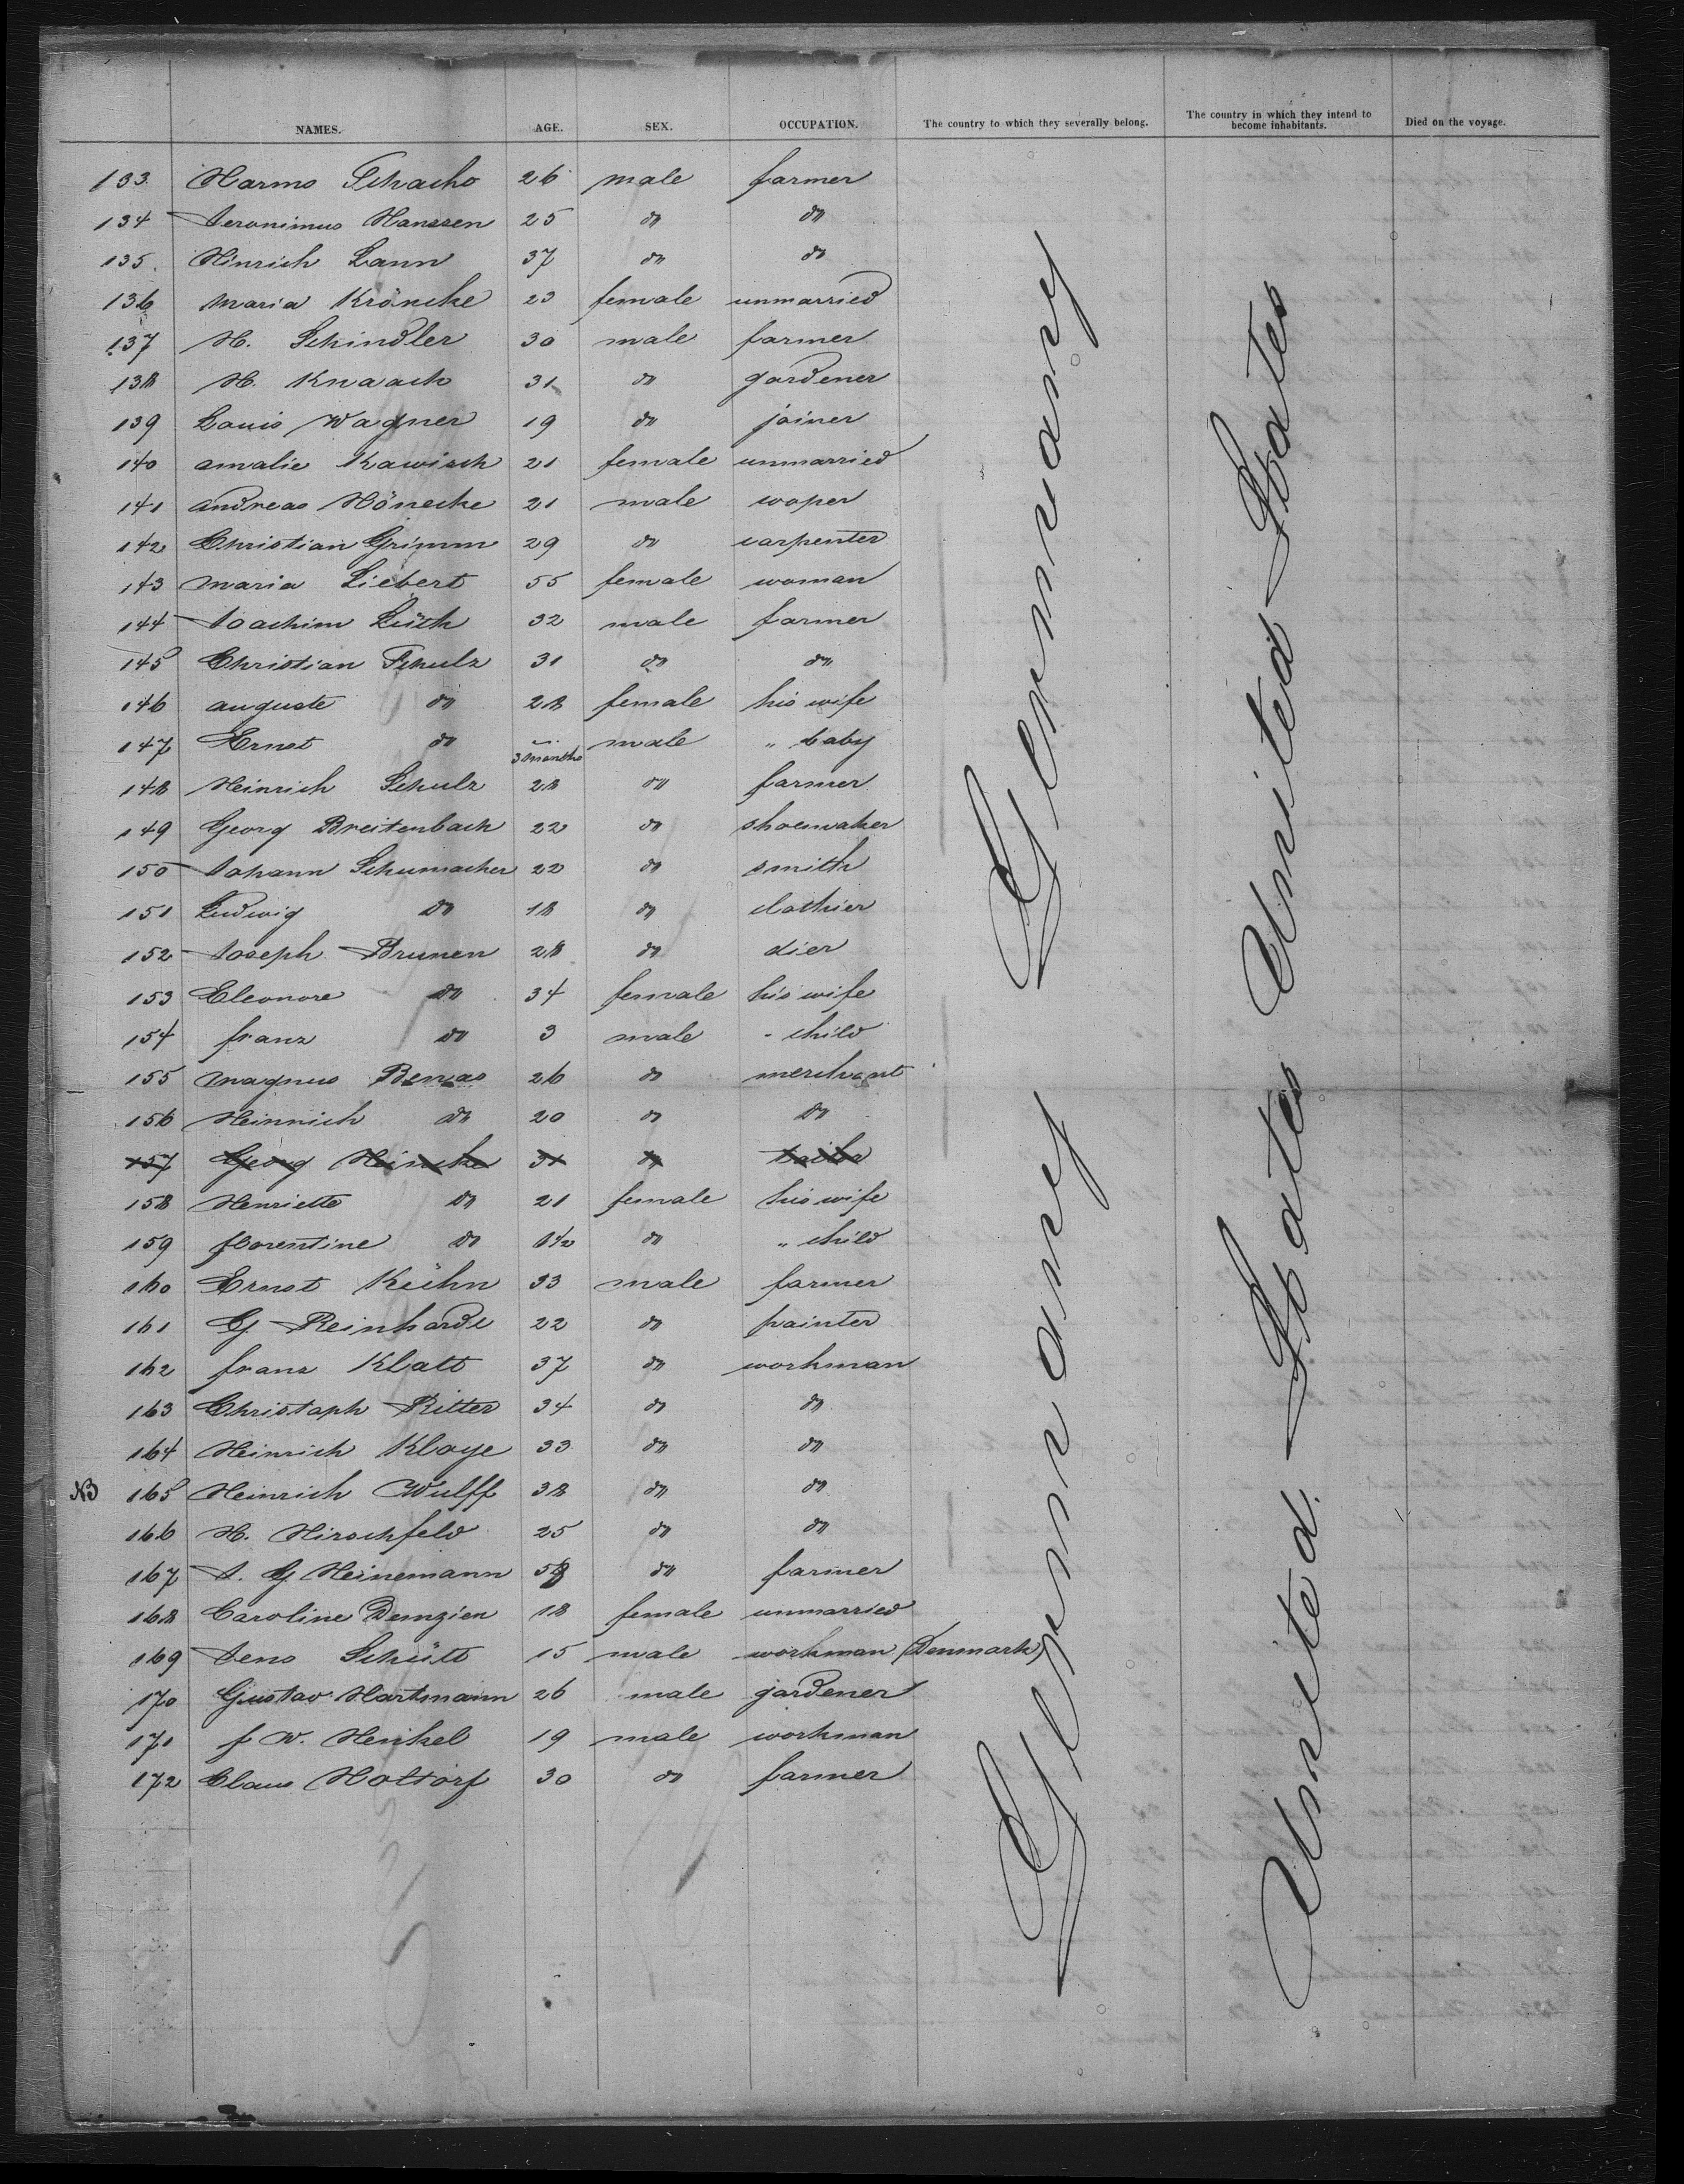 NAMES. AGE. SEX. OCCUPATION. The country to which they severally belong. The country in which they intend to become inhabitants. Died on the voyage.
133 Harms 26 male farmer
134 Jeronimus Hanssen 25 do do
135. Hinrich Lann 37 do do
136 Maria Kröncke 23 female unmarried
137 H. Schindler 30 male farmer
138 H. Knaack 31 do gardener
139 Louis Wagner 19 do joiner
140 Amalie Kawisch 21 female unmarried
141 Andreas Hönecke 21 male cooper
142 Christian Grimm 29 do carpenter
143 Maria Liebert 55 female woman
144 Joachim Lüth 32 male farmer
145 Christian Schulz 31 do do
146 Auguste do 28 female his wife
147 Ernst do 3 months male " baby
148 Heinrich Schulz 28 do farmer
149 Georg Breitenbach 22 do shoemaker
150 Johann Schumacher 22 do smith
151 Ludwig do 18 do clothier
152 Joseph Brunen 28 do dier
153 Eleonore do 34 female his wife
154 Franz do 3 male - child
155 Magnus Benas 26 do merchant
156 Heinrich do 20 do do
157 Georg Heincke 31 do
158 Henriette do 21 female his wife
159 Florentine do 1/2 do " child
160 Ernst Kühn 33 male farmer
161 G Reinhardt 22 do painter
162 Franz Klatt 37 do workman
163 Christoph Ritter 34 do do
164 Heinrich Kloye 33 do do
NB 165 Heinrich Wulff 38 do do
166 H. Hirschfeld 25 do do
167 J. G. Heinemann 58 do farmer
168 Caroline Demzien 18 female unmarried
169 Jens Schütt 15 male workman (Denmark)
170 Gustav Hartmann 26 male gardener
171 F W. Henkel 19 male workman
172 Claus Holtorf 30 do farmer
Germany
Germany
United States
United States